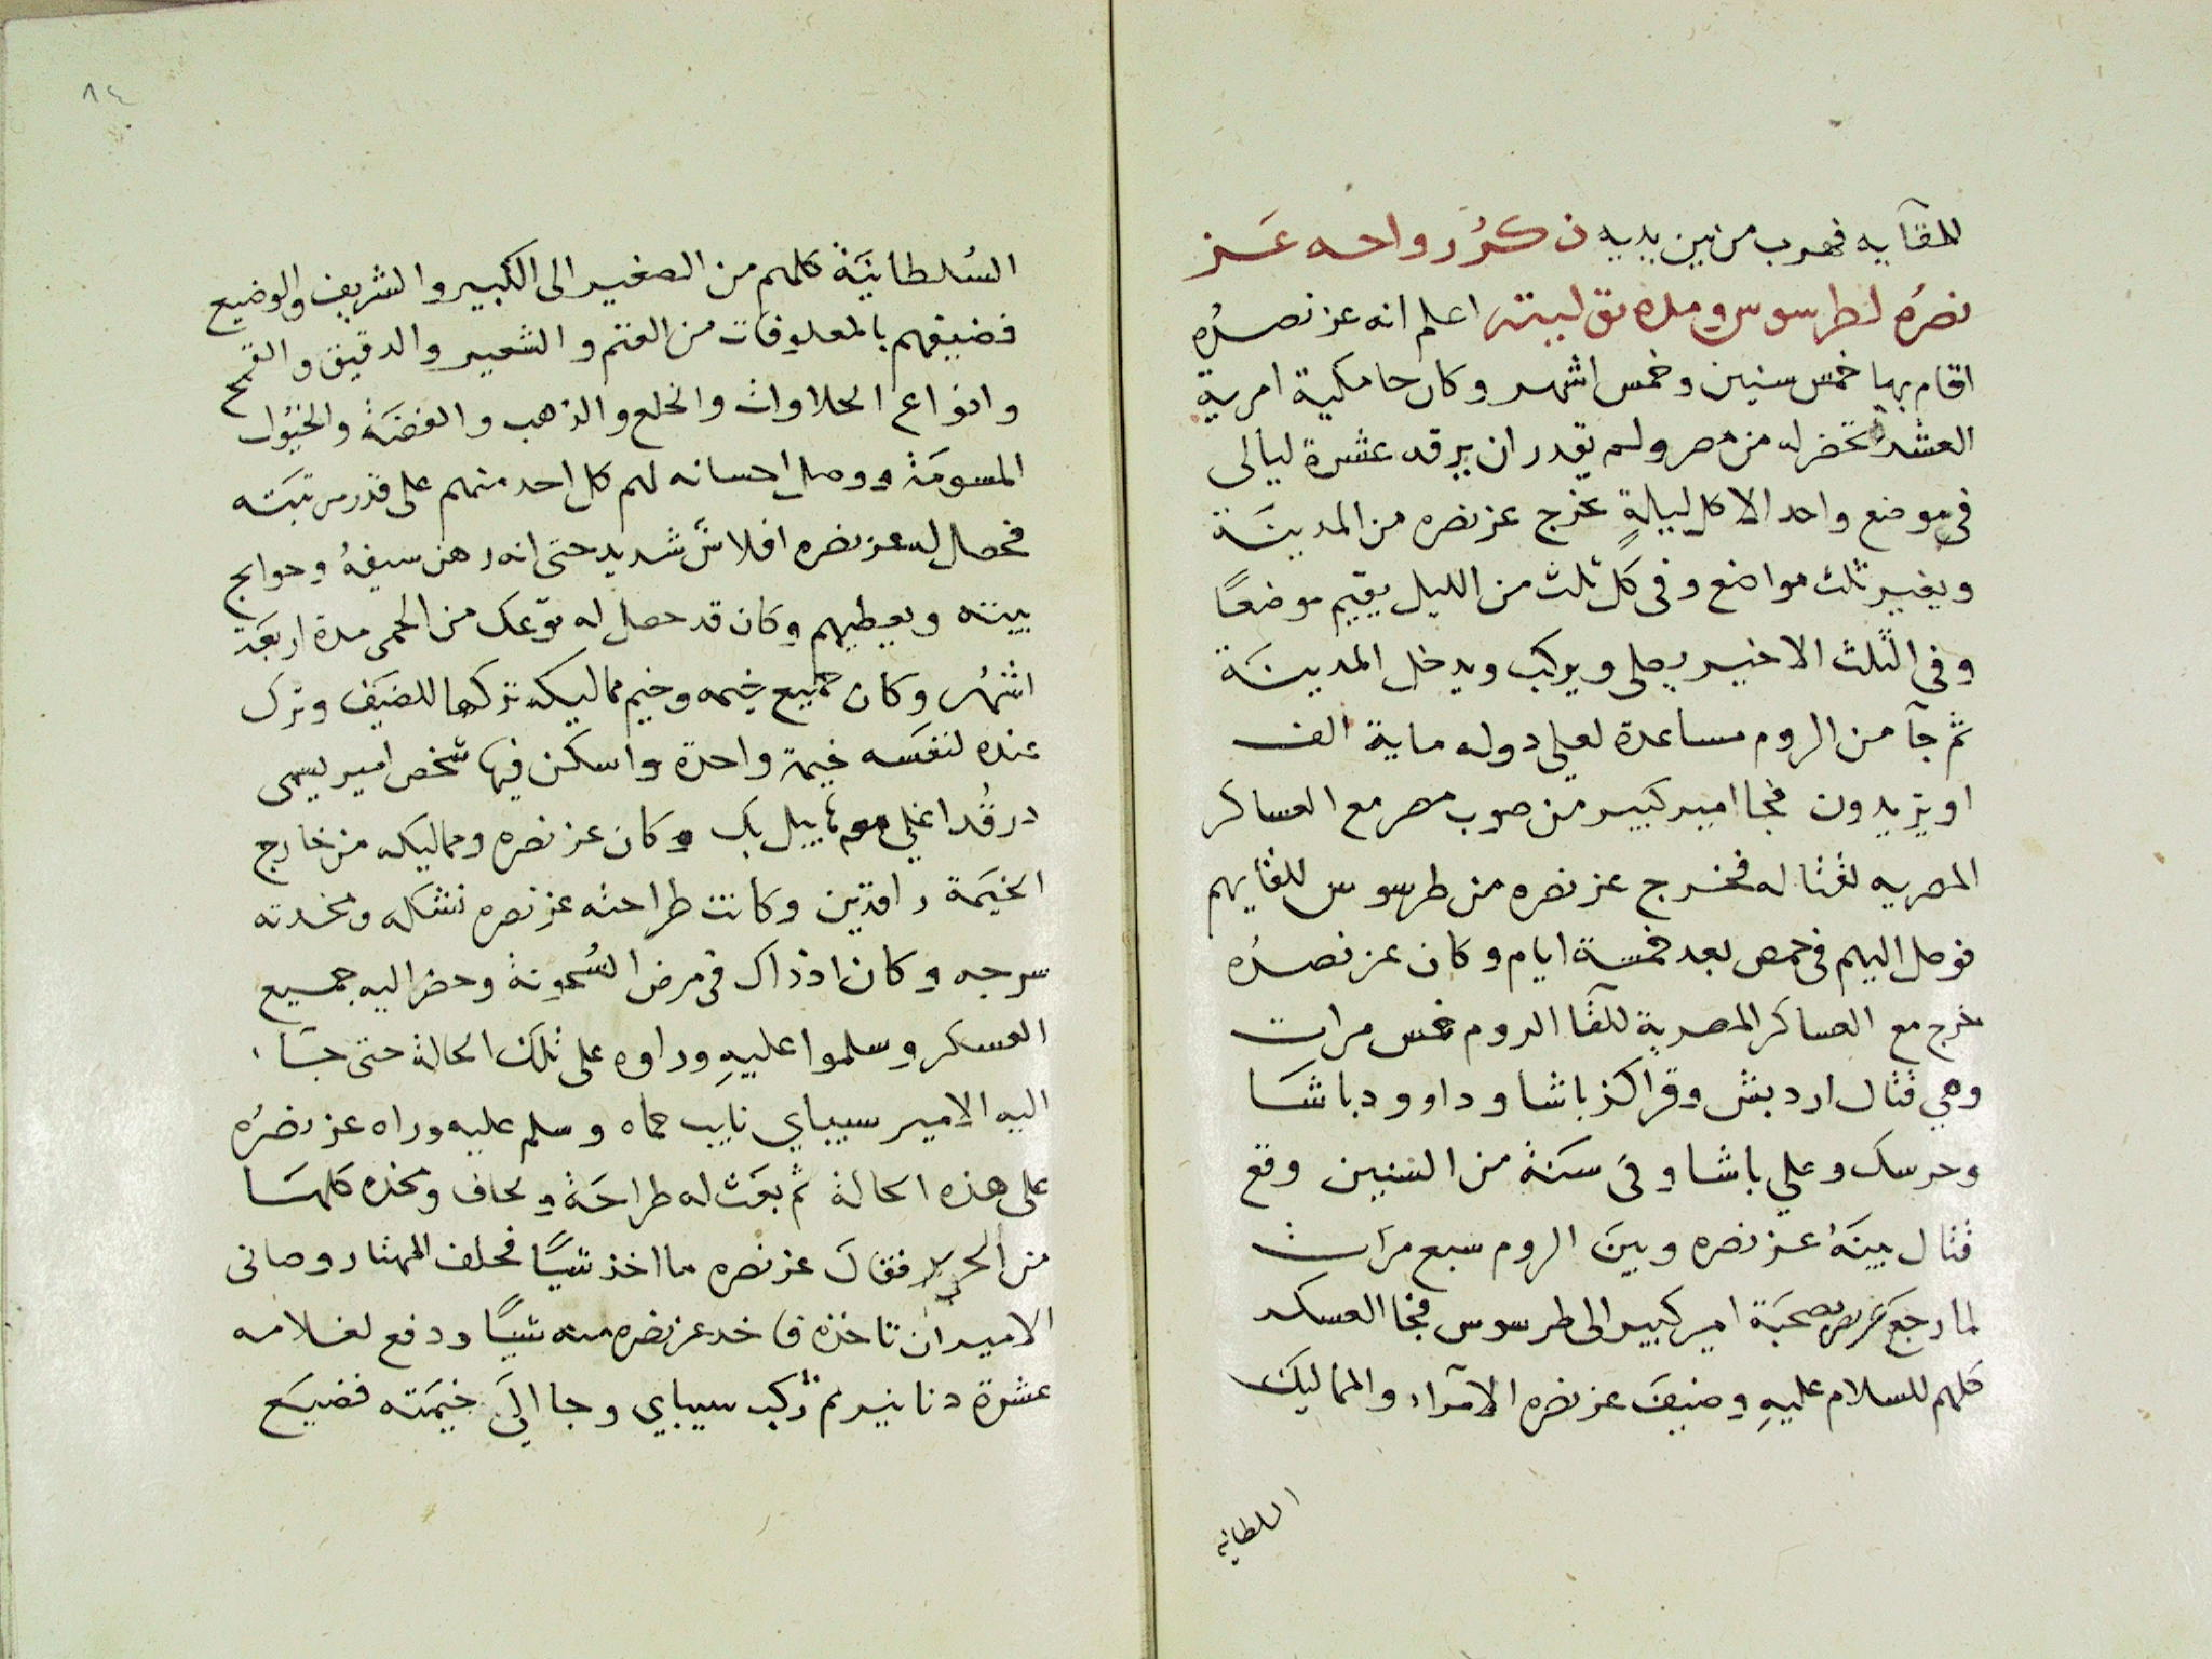 للقآيه فهرب من بين يديه ذكرُ رواحه عَز
نصرُه لطرسوس ومده تق لبيته اعلم انه عز نصرُه
اقام بها خمس سنين وخمس اشهر وكان حامكية امرية
العشرة تحضر له من مصر ولم يقدر ان يرقد عشرة ليالى
فى موضع واحد الا كل ليلةٍ يخرج عز نصره من المدينَة
ويغير ثلث مواضع وفى كل ثلث من الليل يقيم موضعًا
وفى الثلث الاخير يصلى ويركب ويدخل المدينَة
ثم جآ من الروم مساعدة لعلي دوله ماية الف
او يزيدون فجا امير كبير من صوب مصر مع العساكر
المصريه لقتاله فخرج عز نصره من طرسوس للقايهم
فوصل اليهم فى حمص بعد خمسة ايام وكان عز نصرُه
خرج مع العساكر المصرية للقآ الروم خمس مرات
وهي قتال اردبش وقراكز باشا وداوود باشَا
وحرسك وعلي باشا وفى سَنة من السنين وقع
قتال بينَهُ عز نصره وبينَ الروم سبع مرات
لما رجعَ عز نصره صحبَة امير كبير الى طرسوس فجا العسكر
كلهم للسلام عليهِ وضيفَ عز نصره الامرآء والمماليك
السلطانيه
٨٤
السُلطانيَة كلهم من الصغير الى الكبير والشريف والوضيع
فضيفهم بالمعلوفات من الغنم والشعير والدقيق والقمح
وانواع الحلاوات والخلع والذهب والفضَة والخيُول
المسومَة ووصل احسانه لهم كل احد منهم على قدر مرتبَته
فحصل له عز نصره افلاسٌ شديد حتى انه رهن سيفهُ وحوايج
بيته ويعطيهم وكان قد حصل له توعك من الحمى مدة اربعَة
اشهُر وكان جميع خيمه وخيم مماليكه تركها للضيَف وترك
عنده لنفسَه خيمة واحدة واسكن فيها شخص امير يسمى
درقُدا غلي ميكاييل بك وكان عز نصره ومماليكه من خارج
الخيَمة راقدين وكانت طراحته عز نصره تشكله ومخدته
سرجه وكان اذ ذاك فى مرض السُخونة وحضر اليه جميع
العسكر وسلموا عليهِ وراوه على تلك الحالة حتى جَاء
اليه الامير سيباي نايب حماه وسلم عليه وراه عز نصرُه
على هذه الحالة ثم بعَث له طراحَة ولحاف ومخده كلهَا
من الحرير فقال عز نصره ما اخذ شيًا فحلف المهتار وصانى
الامير ان تاخذه فاخد عز نصره منه شيًا ودفع لغلامه
عشرة دنانير ثم ركب سيباي وجا الىَ خيمَته فضيَع